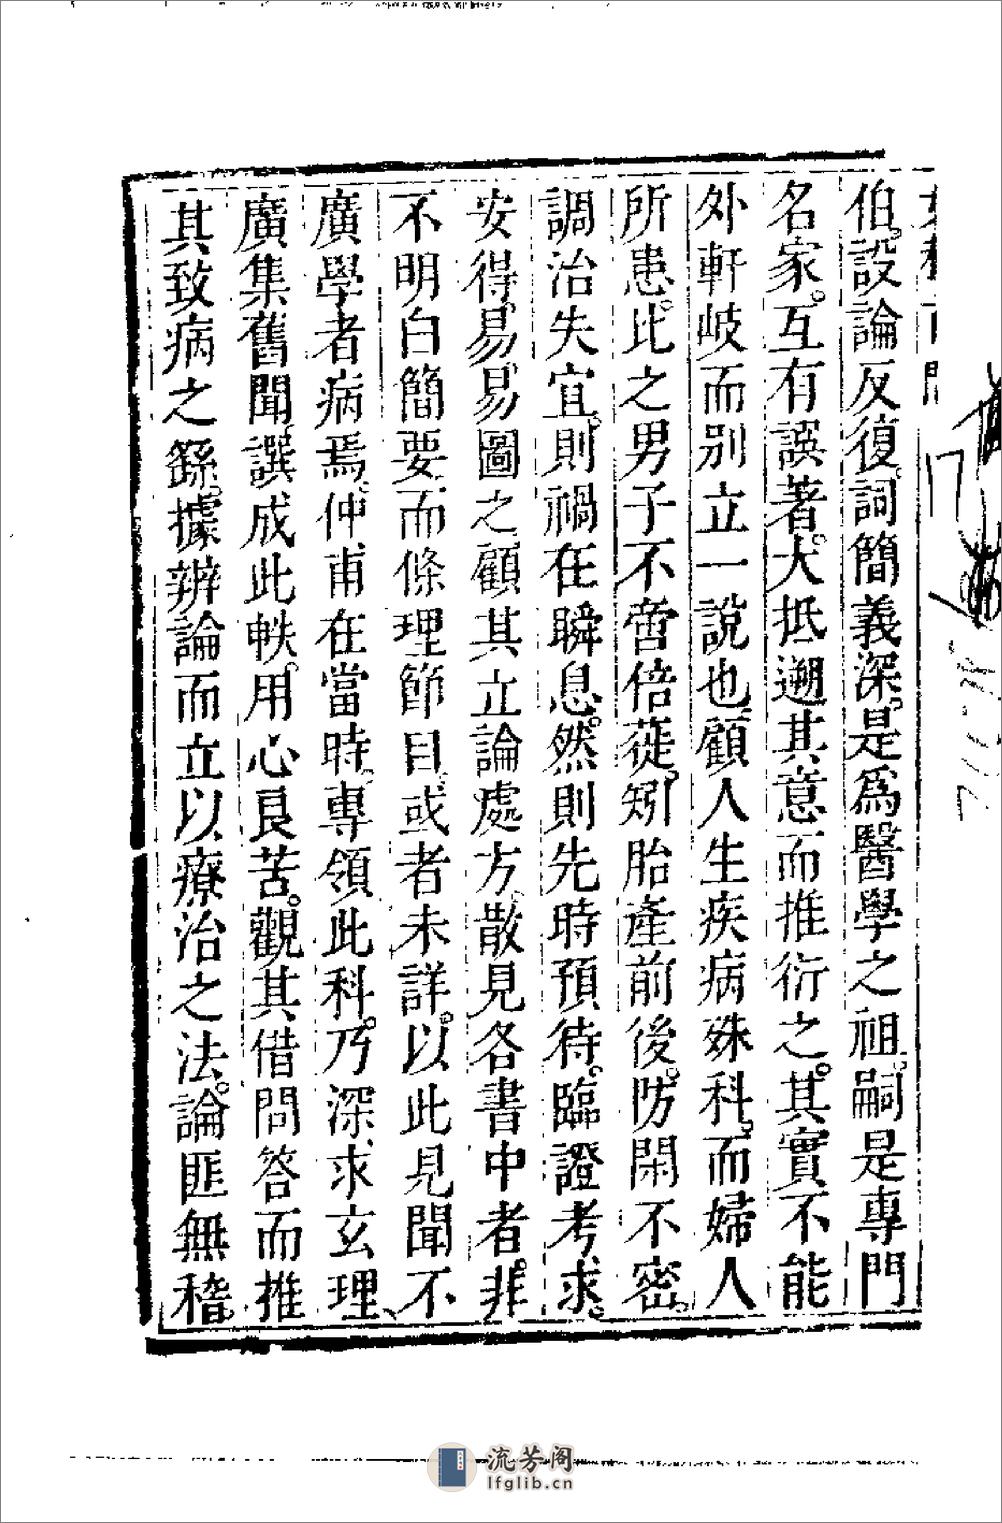 伯。設論反復。詞簡義深。是為醫學之祖。嗣是專門
名家。互有誤著。大抵遡其意而推衍之。其實不能
外軒岐而別立一說也。顧人生疾病殊科。而婦人
所患。比之男子不啻倍蓰。矧胎產前後。防閑不密。
調治失宜。則禍在瞬息。然則先時預待。臨證考求。
安得易易圖之。顧其立論處方。散見各書中者。非
不明白簡要。而條理節目。或者未詳。以此見聞不
廣。學者病焉。仲甫在當時。專領此科。乃深求玄理、
廣集舊聞。譔成此帙。用心良苦。觀其借問答而推
其致病之繇。據辨論而立以療治之法。論匪無稽。
流芳阁
lfglib.cn